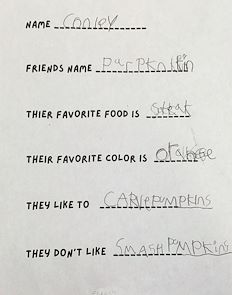 NAME Conley
FRIENDS NAME
THIER FAVORITE FOOD IS Steak
THEIR FAVORITE COLOR IS
THEY LIKE TO CARVEPUMPKINS
THEY DON'T LIKE SMASHPUMPKINS